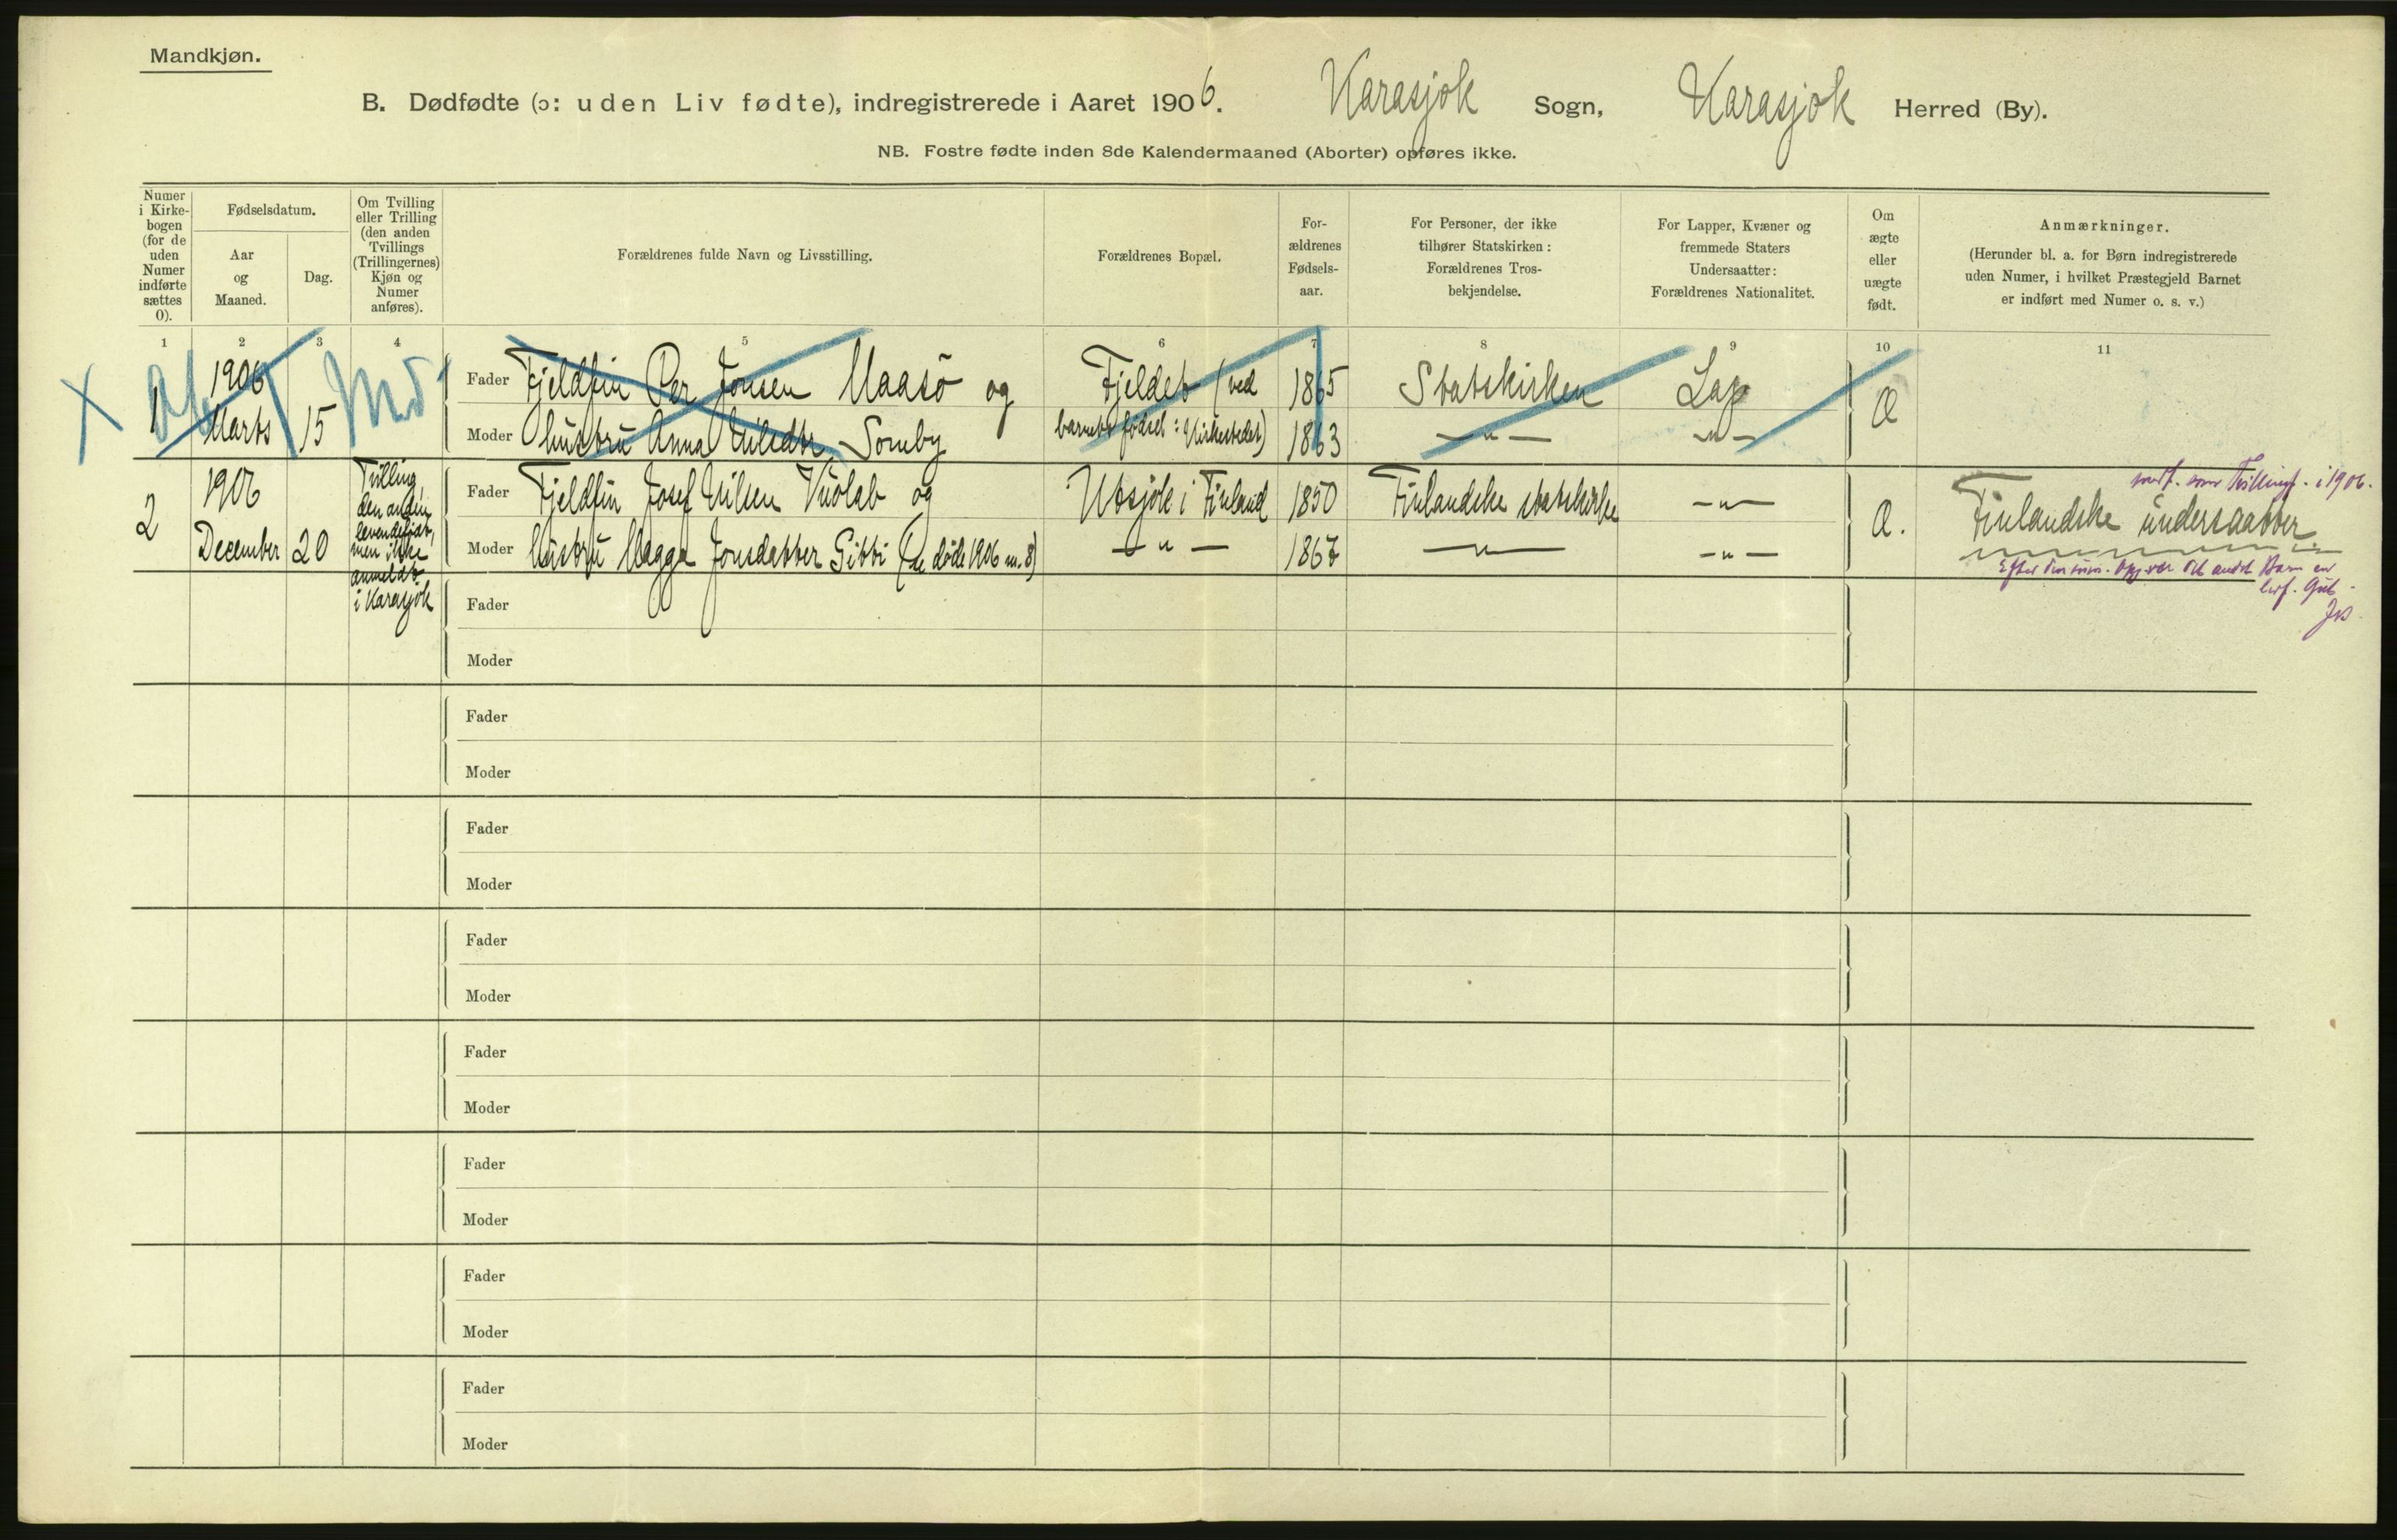 Mandkjøn.
B. Dødfødte (ɔ: uden Liv fødte), indregistrerede i Aaret 1906. Karasjok Sogn, Karasjok Herred (By).
NB. Fostre fødte inden 8de Kalendermaaned (Aborter) opføres ikke.
Numer i Kirke-bogen (for de uden Numer indførte sættes 0).
Fødselsdatum.
Aar og Maaned.
Dag.
Om Tvilling eller Trilling (den anden Tvillings (Trillingernes) Kjøn og Numer anføres).
Forældrenes fulde Navn og Livsstilling.
Forældrenes Bopæl.
For-ældrenes Fødsels-aar.
For Personer, der ikke tilhører Statskirken: Forældrenes Tros-bekjendelse.
For Lapper, Kvæner og fremmede Staters Undersaatter: Forældrenes Nationalitet.
Om ægte eller uægte født.
Anmærkninger.
(Herunder bl. a. for Børn indregistrerede uden Numer, i hvilket Præstegjeld Barnet er indført med Numer o. s. v.)
1 2 3 4 5 6 7 8 9 10 11
X 1 1906 Marts 15
Fader Fjeldfin Per Jonsen Maasö og Fjeldet (ved 1865 Statskirken Lap Æ
Moder hustru Anna Nilsdtr Somby barnets födsel: Kirkestedet) 1863 — " — — " —
2 1906 December 20
Tvilling, den anden levendefödt, men ikke anmeldt i Karasjok
Fader Fjeldfin Josef Nilsen Vuolab og Utsjok i Finland 1850 Finlandske statskirke — " — Æ. Finlandske undersaatter
Moder Hustru Magga Jonsdatter Gitti (se döde 1906 m. 8) — " — 1867 — " — — " —
som Tvilling i 1906.
Efter det andet Barn en
Fader
Moder
Fader
Moder
Fader
Moder
Fader
Moder
Fader
Moder
Fader
Moder
Fader
Moder
Fader
Moder